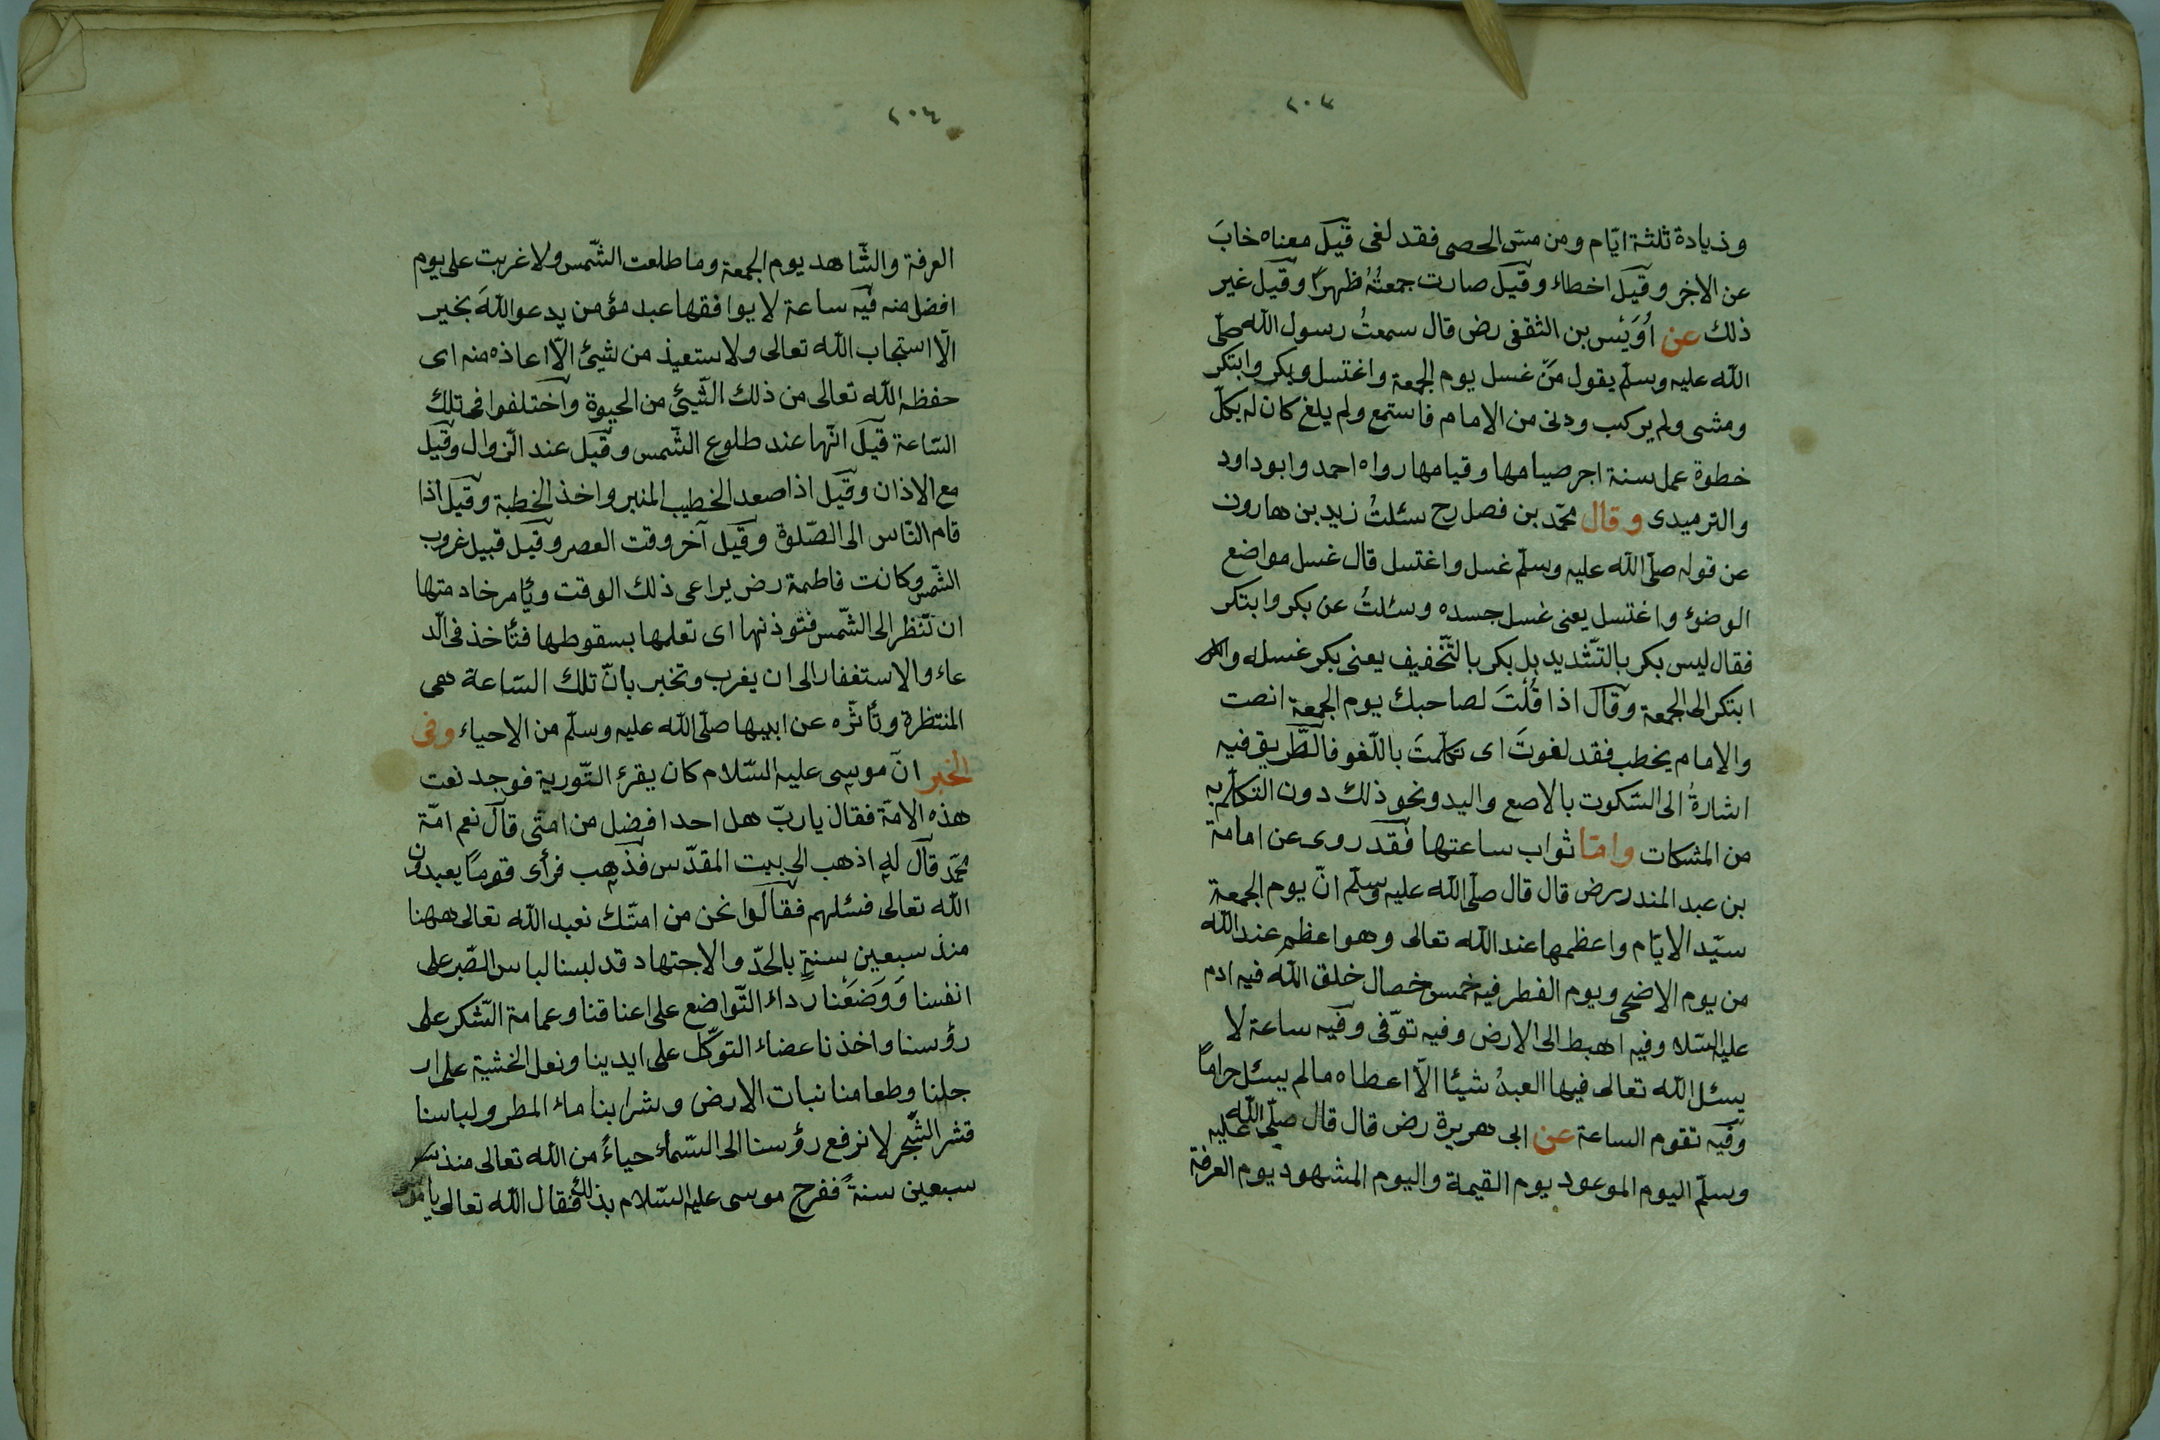 ٢٠٣
وزيادة ثلثة ايّام ومن مسّ الحصى فقد لغى قيل معناه خابَ
عن الاجر وقيل اخطاء وقيل صارت جمعتُهُ ظهرًا وقيل غير
ذلك عن اُوَيْس بن الثقفى رض قال سمعتُ رسول الله صلّى
الله عليه وسلّم يقول مَنْ غسل يوم الجمعة واغتسل وبكر وابتكر
ومشى ولم يركب ودنى من الامام فاستمع ولم يلغ كان له بكلّ
خطوة عمل سنة اجر صيامها وقيامها رواه احمد وابو داود
والترميدى وقال محمّد بن فصل رح سئلتُ زيد بن هارون
عن قوله صلّى الله عليه وسلّم غسل واغتسل قال غسل مواضع
الوضوء واغتسل يعنى غسل جسده وسئلتُ عن بكر وابتكر
فقال ليس بكر بالتّشديد بل بكر بالتّخفيف يعنى بكر غسله و
ابتكر الى الجمعة وقال اذا قُلْتَ لصاحبك يوم الجمعة انصت
والامام يخطب فقد لغوتَ اى تكلّمتَ باللّغو فالطّريق فيه
اشارةُ الى السّكوت بالاصع واليد ونحو ذلك دون التكلّم به
من المشكات وامّا ثواب ساعتها فقد روى عن امامة
بن عبد المندر رض قال قال صلّى الله عليه وسلّم انّ يوم الجمعة
سيّد الايّام واعظمها عند الله تعالى وهو اعظم عند الله
من يوم الاضحى ويوم الفطر فيه خمس خصال خلق الله فيه ادم
عليه السّلا وفيه اهبط الى الارض وفيه توّفى وفيه ساعة لا
يسئل الله تعالى فيها العبدُ شيئا الّا اعطاه مالم يسئل حرامًا
وفيه تقوم الساعة عن ابى هريرة رض قال قال صلّى الله عليه
وسلّم اليوم الموعود يوم القيمة واليوم المشهود يوم العرفة
٢٠٤
العرفة والشّاهد يوم الجمعة وما طلعت الشّمس ولا غربت على يوم
افضل منه فيه ساعة لا يوافقها عبد مؤمن يدعو اللهَ بخير
الّا استجاب الله تعالى ولا ستعيذ من شيئ الّا اعاذه منه اى
حفظه الله تعالى من ذلك الشّيئ من الحيوة واختلفوا فى تلك
السّاعة قيل انّها عند طلوع الشّمس وقيل عند الزّوال وقيل
مع الاذان وقيل اذا صعد الخطيب المنبر واخذ الخطبة وقيل اذا
قام النّاس الى الصّلوة وقيل آخر وقت العصر وقيل قبيل غروب
الشّمس وكانت فاطمة رض يراعى ذلك الوقت ويأمر خادمتها
ان تنّظر الى الشّمس فتوذنها اى تعلمها بسقوطها فتأخذ فى الّد
عاء والاستغفار الى ان يغرب وتخبر بانّ تلك السّاعة هى
المنتظرة وتأثّره عن ابيها صلّى الله عليه وسلّم من الاحياء وفى
الخبر انّ موسى عليه السّلام كان يقرئ التّورية فوجد نعت
هذه الامّة فقال ياربّ هل احد افضل من امّتى قال نعم امّة
محمّد قال له اذهب الى بيت المقدّس فذهب فرأى قومًا يعبدون
الله تعالى فسئلهم فقالوا نحن من امتّك نعبد الله تعالى ههنا
منذ سبعين سنةٍ بالحدّ والاجتهاد قد لبسنا لباس الصّبر على
انفسنا وَوَضَعْنا رداء التّواضع على اعناقنا وعمامة الشّكر على
رؤسنا واخذنا عضاء التوكّل على ايدينا ونعل الخشية على ار
جلنا وطعامنا نبات الارض وشرابنا ماء المطر ولباسنا
قشر الشّجر لا نرفع رؤسنا الى السّماء حياءً من الله تعالى منذ
سبعين سنةً ففرح موسى عليه السّلام بذلك فقال الله تعالى يا